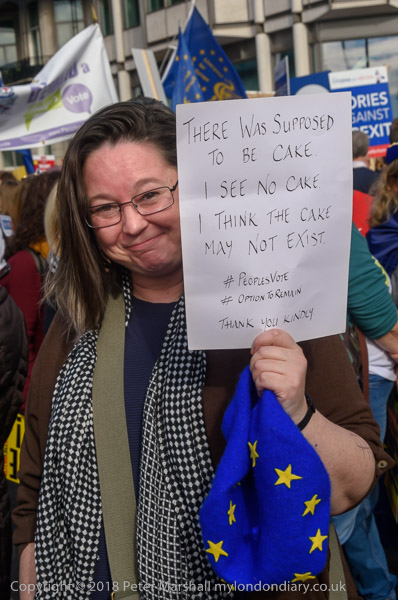 Vote
ORIES
AGAINST
EXIT
THERE WAS SUPPOSED
TO BE CAKE.
I SEE NO CAKE.
I THINK THE CAKE
MAY NOT EXIST.
#PEOPLESVOTE
#OPTIONTOREMAIN
THANK YOU KINDLY
Copyright © 2018 Peter Marshall mylondondiary.co.uk